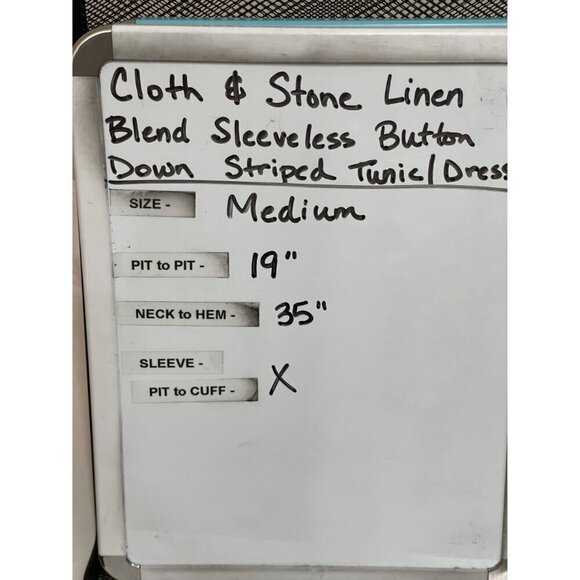 Cloth & Stone Linen
Blend Sleeveless Button
Down Striped Tunic/Dress
SIZE - Medium
PIT to PIT - 19"
NECK to HEM - 35"
SLEEVE -
PIT to CUFF - X